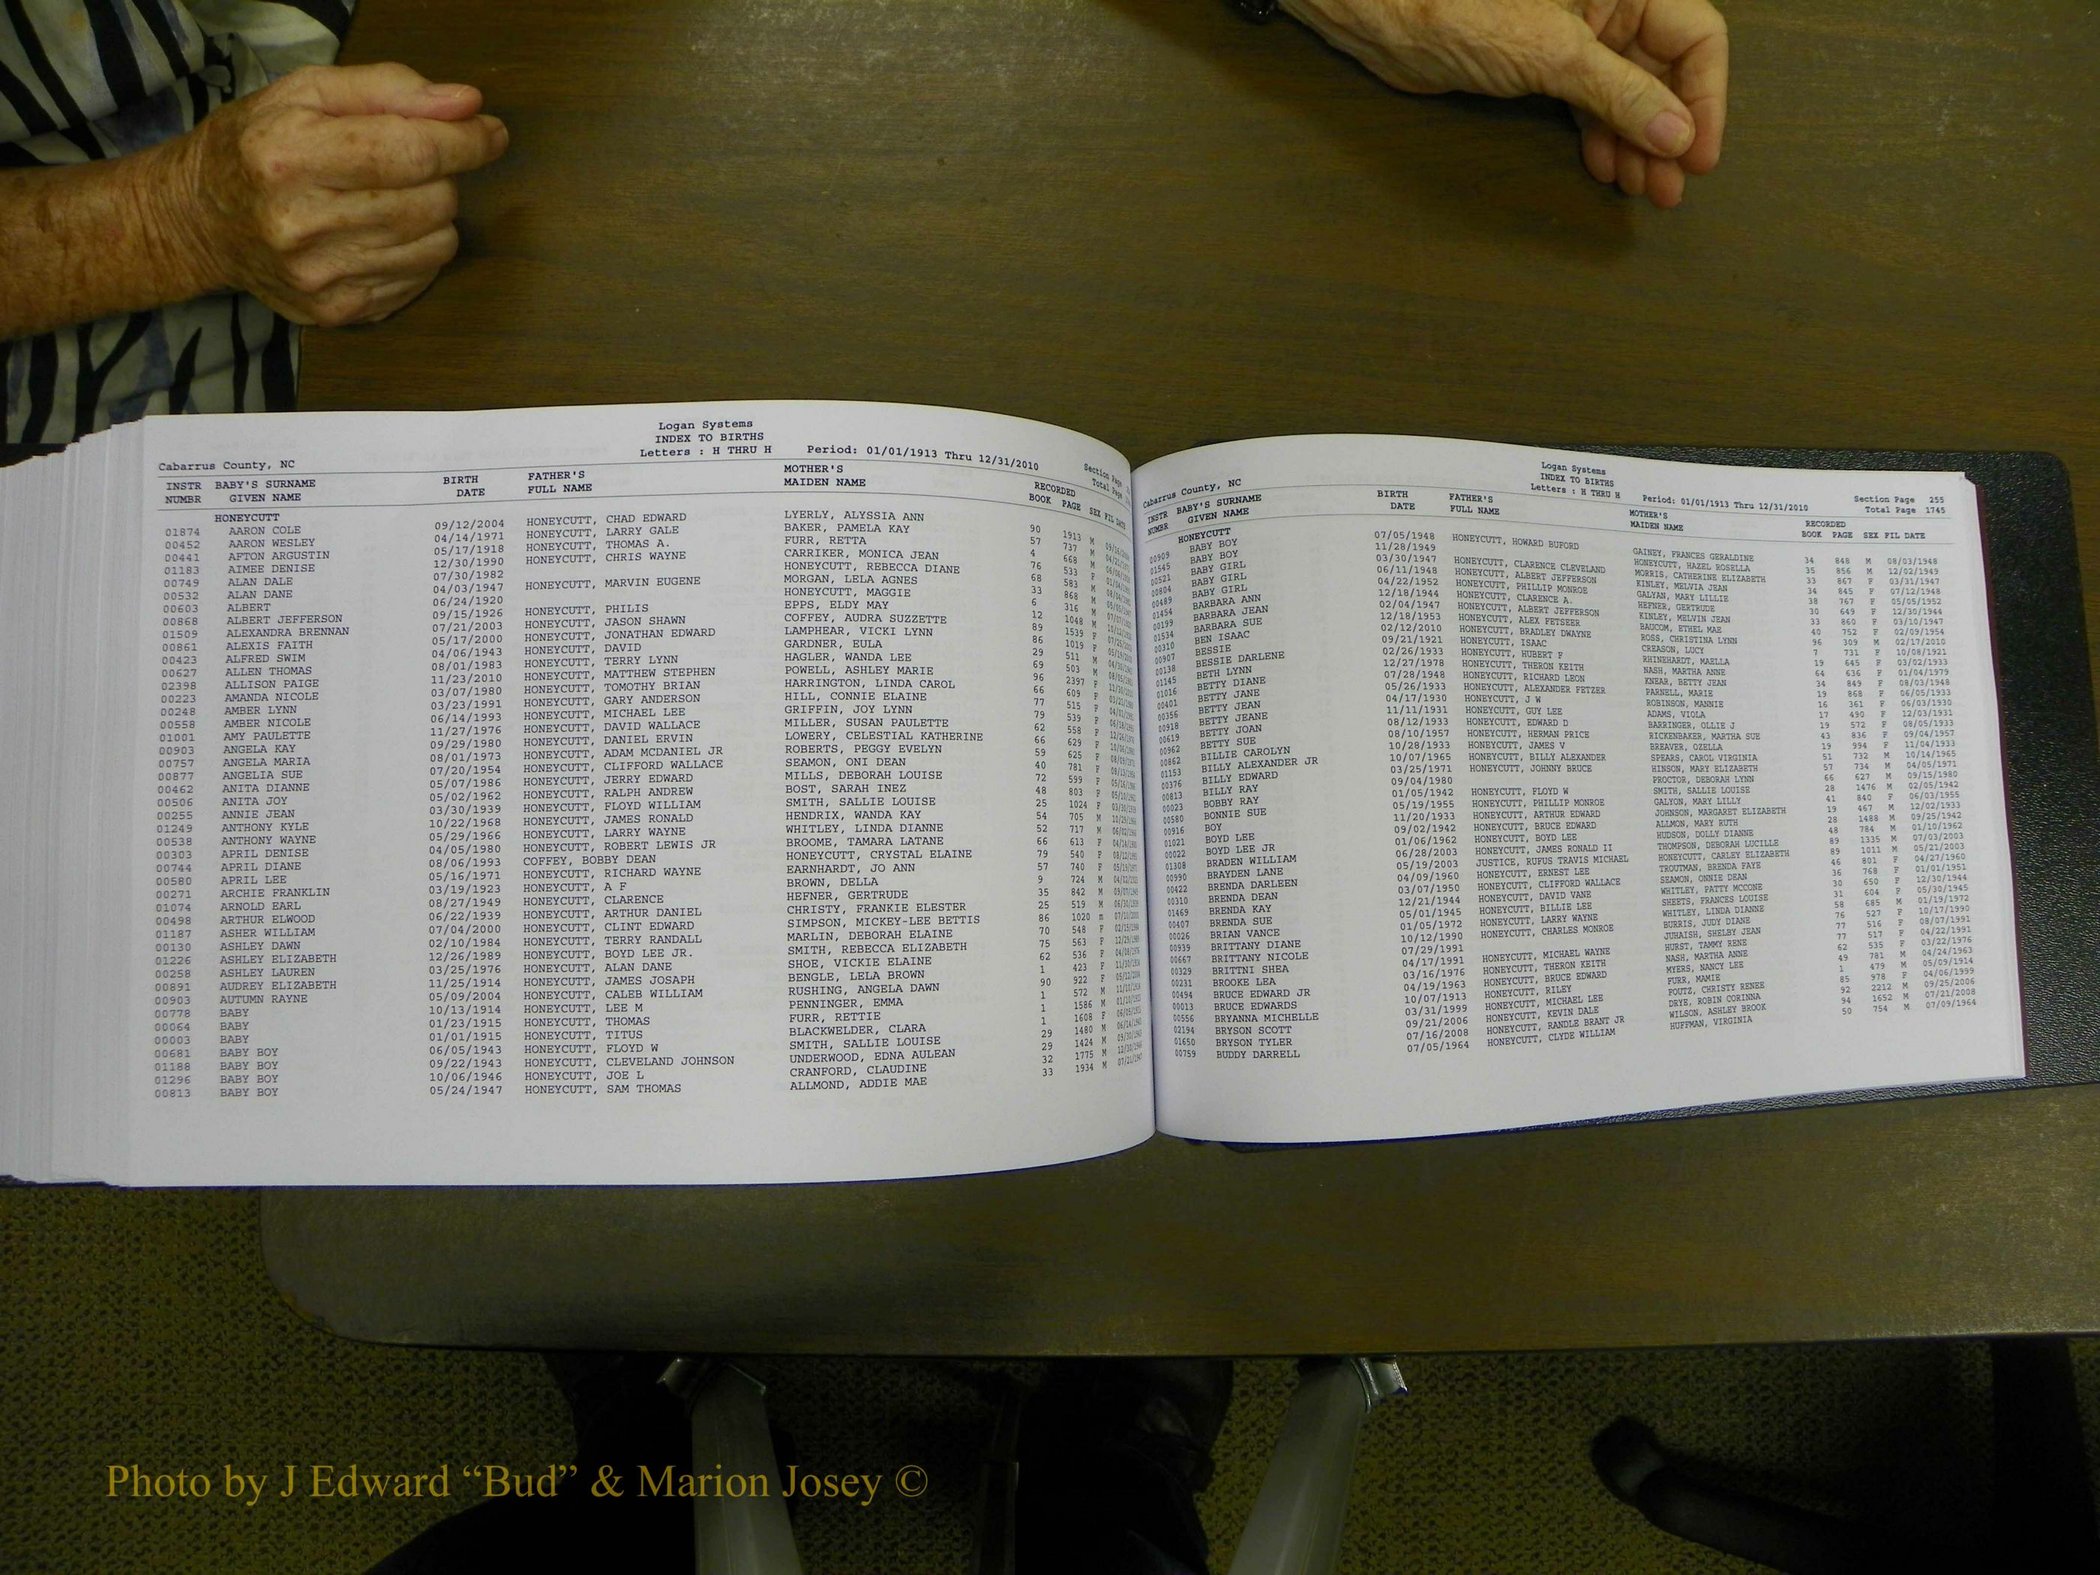 Logan Systems
INDEX TO BIRTHS
Letters : H THRU H Period: 01/01/1913 Thru 12/31/2010
Cabarrus County, NC Section Page
Total Page
INSTR BABY'S SURNAME BIRTH FATHER'S MOTHER'S RECORDED
NUMBR GIVEN NAME DATE FULL NAME MAIDEN NAME BOOK PAGE SEX FIL DATE
HONEYCUTT
01874 AARON COLE 09/12/2004 HONEYCUTT, CHAD EDWARD LYERLY, ALYSSIA ANN 90 1913 M
00452 AARON WESLEY 04/14/1971 HONEYCUTT, LARRY GALE BAKER, PAMELA KAY 57 737 M
00441 AFTON ARGUSTIN 05/17/1918 HONEYCUTT, THOMAS A. FURR, RETTA 4 668 M
01183 AIMEE DENISE 12/30/1990 HONEYCUTT, CHRIS WAYNE CARRIKER, MONICA JEAN 76 533 F
00749 ALAN DALE 07/30/1982 HONEYCUTT, REBECCA DIANE 68 583 M
00532 ALAN DANE 04/03/1947 HONEYCUTT, MARVIN EUGENE MORGAN, LELA AGNES 33 868 M
00603 ALBERT 06/24/1920 HONEYCUTT, MAGGIE 6 316 M
00868 ALBERT JEFFERSON 09/15/1926 HONEYCUTT, PHILIS EPPS, ELDY MAY 12 1048 M
01509 ALEXANDRA BRENNAN 07/21/2003 HONEYCUTT, JASON SHAWN COFFEY, AUDRA SUZZETTE 89 1539 F
00861 ALEXIS FAITH 05/17/2000 HONEYCUTT, JONATHAN EDWARD LAMPHEAR, VICKI LYNN 86 1019 F
00423 ALFRED SWIM 04/06/1943 HONEYCUTT, DAVID GARDNER, EULA 29 511 M
00627 ALLEN THOMAS 08/01/1983 HONEYCUTT, TERRY LYNN HAGLER, WANDA LEE 69 503 M
02398 ALLISON PAIGE 11/23/2010 HONEYCUTT, MATTHEW STEPHEN POWELL, ASHLEY MARIE 96 2397 F
00223 AMANDA NICOLE 03/07/1980 HONEYCUTT, TOMOTHY BRIAN HARRINGTON, LINDA CAROL 66 609 F
00248 AMBER LYNN 03/23/1991 HONEYCUTT, GARY ANDERSON HILL, CONNIE ELAINE 77 515 F
00558 AMBER NICOLE 06/14/1993 HONEYCUTT, MICHAEL LEE GRIFFIN, JOY LYNN 79 539 F
01001 AMY PAULETTE 11/27/1976 HONEYCUTT, DAVID WALLACE MILLER, SUSAN PAULETTE 62 558 F
00903 ANGELA KAY 09/29/1980 HONEYCUTT, DANIEL ERVIN LOWERY, CELESTIAL KATHERINE 66 629 F
00757 ANGELA MARIA 08/01/1973 HONEYCUTT, ADAM MCDANIEL JR ROBERTS, PEGGY EVELYN 59 625 F
00877 ANGELIA SUE 07/20/1954 HONEYCUTT, CLIFFORD WALLACE SEAMON, ONI DEAN 40 781 F
00462 ANITA DIANNE 05/07/1986 HONEYCUTT, JERRY EDWARD MILLS, DEBORAH LOUISE 72 599 F
00506 ANITA JOY 05/02/1962 HONEYCUTT, RALPH ANDREW BOST, SARAH INEZ 48 803 F
00255 ANNIE JEAN 03/30/1939 HONEYCUTT, FLOYD WILLIAM SMITH, SALLIE LOUISE 25 1024 F
01249 ANTHONY KYLE 10/22/1968 HONEYCUTT, JAMES RONALD HENDRIX, WANDA KAY 54 705 M
00538 ANTHONY WAYNE 05/29/1966 HONEYCUTT, LARRY WAYNE WHITLEY, LINDA DIANNE 52 717 M
00303 APRIL DENISE 04/05/1980 HONEYCUTT, ROBERT LEWIS JR BROOME, TAMARA LATANE 66 613 F
00744 APRIL DIANE 08/06/1993 COFFEY, BOBBY DEAN HONEYCUTT, CRYSTAL ELAINE 79 540 F
00580 APRIL LEE 05/16/1971 HONEYCUTT, RICHARD WAYNE EARNHARDT, JO ANN 57 740 F
00271 ARCHIE FRANKLIN 03/19/1923 HONEYCUTT, A F BROWN, DELLA 9 724 M
01074 ARNOLD EARL 08/27/1949 HONEYCUTT, CLARENCE HEFNER, GERTRUDE 35 842 M
00498 ARTHUR ELWOOD 06/22/1939 HONEYCUTT, ARTHUR DANIEL CHRISTY, FRANKIE ELESTER 25 519 M
01187 ASHER WILLIAM 07/04/2000 HONEYCUTT, CLINT EDWARD SIMPSON, MICKEY-LEE BETTIS 86 1020 m
00130 ASHLEY DAWN 02/10/1984 HONEYCUTT, TERRY RANDALL MARLIN, DEBORAH ELAINE 70 548 F
01226 ASHLEY ELIZABETH 12/26/1989 HONEYCUTT, BOYD LEE JR. SMITH, REBECCA ELIZABETH 75 563 F
00258 ASHLEY LAUREN 03/25/1976 HONEYCUTT, ALAN DANE SHOE, VICKIE ELAINE 62 536 F
00891 AUDREY ELIZABETH 11/25/1914 HONEYCUTT, JAMES JOSAPH BENGLE, LELA BROWN 1 423 F
00903 AUTUMN RAYNE 05/09/2004 HONEYCUTT, CALEB WILLIAM RUSHING, ANGELA DAWN 90 922 F
00778 BABY 10/13/1914 HONEYCUTT, LEE M PENNINGER, EMMA 1 572 M
00064 BABY 01/23/1915 HONEYCUTT, THOMAS FURR, RETTIE 1 1586 M
00003 BABY 01/01/1915 HONEYCUTT, TITUS BLACKWELDER, CLARA 1 1608 F
00681 BABY BOY 06/05/1943 HONEYCUTT, FLOYD W SMITH, SALLIE LOUISE 29 1480 M
01188 BABY BOY 09/22/1943 HONEYCUTT, CLEVELAND JOHNSON UNDERWOOD, EDNA AULEAN 29 1424 M
01296 BABY BOY 10/06/1946 HONEYCUTT, JOE L CRANFORD, CLAUDINE 32 1775 M
00813 BABY BOY 05/24/1947 HONEYCUTT, SAM THOMAS ALLMOND, ADDIE MAE 33 1934 M
Logan Systems
INDEX TO BIRTHS
Letters : H THRU H Period: 01/01/1913 Thru 12/31/2010
Cabarrus County, NC Section Page 255
Total Page 1745
INSTR BABY'S SURNAME BIRTH FATHER'S MOTHER'S RECORDED
NUMBR GIVEN NAME DATE FULL NAME MAIDEN NAME BOOK PAGE SEX FIL DATE
HONEYCUTT
00909 BABY BOY 07/05/1948 HONEYCUTT, HOWARD BUFORD GAINEY, FRANCES GERALDINE 34 848 M 08/03/1948
01545 BABY BOY 11/28/1949 HONEYCUTT, HAZEL ROSELLA 35 856 M 12/02/1949
00521 BABY GIRL 03/30/1947 HONEYCUTT, CLARENCE CLEVELAND MORRIS, CATHERINE ELIZABETH 33 867 F 03/31/1947
00804 BABY GIRL 06/11/1948 HONEYCUTT, ALBERT JEFFERSON KINLEY, MELVIA JEAN 34 845 F 07/12/1948
00489 BARBARA ANN 04/22/1952 HONEYCUTT, PHILLIP MONROE GALYAN, MARY LILLIE 38 767 F 05/05/1952
01454 BARBARA JEAN 12/18/1944 HONEYCUTT, CLARENCE A. HEFNER, GERTRUDE 30 649 F 12/30/1944
00199 02/04/1947 HONEYCUTT, ALBERT JEFFERSON KINLEY, MELVIN JEAN 33 860 F 03/10/1947
01534 BARBARA SUE 12/18/1953 HONEYCUTT, ALEX FETSEER BAUCOM, ETHEL MAE 40 752 F 02/09/1954
00310 BEN ISAAC 02/12/2010 HONEYCUTT, BRADLEY DWAYNE ROSS, CHRISTINA LYNN 96 309 M 02/17/2010
00907 BESSIE 09/21/1921 HONEYCUTT, ISAAC CREASON, LUCY 7 731 F 10/08/1921
00138 BESSIE DARLENE 02/26/1933 HONEYCUTT, HUBERT F RHINEHARDT, MAELLA 19 645 F 03/02/1933
01145 BETH LYNN 12/27/1978 HONEYCUTT, THERON KEITH NASH, MARTHA ANNE 64 636 F 01/04/1979
01016 BETTY DIANE 07/28/1948 HONEYCUTT, RICHARD LEON KNEAR, BETTY JEAN 34 849 F 08/03/1948
00401 BETTY JANE 05/26/1933 HONEYCUTT, ALEXANDER FETZER PARNELL, MARIE 19 868 F 06/05/1933
00356 BETTY JEAN 04/17/1930 HONEYCUTT, J W ROBINSON, MANNIE 16 361 F 06/03/1930
00918 BETTY JEANE 11/11/1931 HONEYCUTT, GUY LEE ADAMS, VIOLA 17 490 F 12/03/1931
00619 BETTY JOAN 08/12/1933 HONEYCUTT, EDWARD D BARRINGER, OLLIE J 19 572 F 08/05/1933
00962 BETTY SUE 08/10/1957 HONEYCUTT, HERMAN PRICE RICKENBAKER, MARTHA SUE 43 836 F 09/04/1957
00862 BILLIE CAROLYN 10/28/1933 HONEYCUTT, JAMES V BREAVER, OZELLA 19 994 F 11/04/1933
01153 BILLY ALEXANDER JR 10/07/1965 HONEYCUTT, BILLY ALEXANDER SPEARS, CAROL VIRGINIA 51 732 M 10/14/1965
00376 BILLY EDWARD 03/25/1971 HONEYCUTT, JOHNNY BRUCE HINSON, MARY ELIZABETH 57 734 M 04/05/1971
00813 BILLY RAY 09/04/1980 PROCTOR, DEBORAH LYNN 66 627 M 09/15/1980
00023 BOBBY RAY 01/05/1942 HONEYCUTT, FLOYD W SMITH, SALLIE LOUISE 28 1476 M 02/05/1942
00580 BONNIE SUE 05/19/1955 HONEYCUTT, PHILLIP MONROE GALYON, MARY LILLY 41 840 F 06/03/1955
00916 BOY 11/20/1933 HONEYCUTT, ARTHUR EDWARD JOHNSON, MARGARET ELIZABETH 19 467 M 12/02/1933
01021 BOYD LEE 09/02/1942 HONEYCUTT, BRUCE EDWARD ALLMON, MARY RUTH 28 1488 M 09/25/1942
00022 BOYD LEE JR 01/06/1962 HONEYCUTT, BOYD LEE HUDSON, DOLLY DIANNE 48 784 M 01/10/1962
01308 BRADEN WILLIAM 06/28/2003 HONEYCUTT, JAMES RONALD II THOMPSON, DEBORAH LUCILLE 89 1335 M 07/03/2003
00990 BRAYDEN LANE 05/19/2003 JUSTICE, RUFUS TRAVIS MICHAEL HONEYCUTT, CARLEY ELIZABETH 89 1011 M 05/21/2003
00422 BRENDA DARLEEN 04/09/1960 HONEYCUTT, ERNEST LEE TROUTMAN, BRENDA FAYE 46 801 F 04/27/1960
00310 BRENDA DEAN 03/07/1950 HONEYCUTT, CLIFFORD WALLACE SEAMON, ONNIE DEAN 36 768 F 01/01/1951
01469 BRENDA KAY 12/21/1944 HONEYCUTT, DAVID VANE WHITLEY, PATTY MCCONE 30 650 F 12/30/1944
00407 BRENDA SUE 05/01/1945 HONEYCUTT, BILLIE LEE SHEETS, FRANCES LOUISE 31 604 F 05/30/1945
00026 BRIAN VANCE 01/05/1972 HONEYCUTT, LARRY WAYNE WHITLEY, LINDA DIANE 58 685 M 01/19/1972
00939 BRITTANY DIANE 10/12/1990 HONEYCUTT, CHARLES MONROE BURRIS, JUDY DIANE 76 527 F 10/17/1990
00667 BRITTANY NICOLE 07/29/1991 JUHAISH, SHELBY JEAN 77 516 F 08/07/1991
00329 BRITTNI SHEA 04/17/1991 HONEYCUTT, MICHAEL WAYNE HURST, TAMMY RENE 77 517 F 04/22/1991
00231 BROOKE LEA 03/16/1976 HONEYCUTT, THERON KEITH NASH, MARTHA ANNE 62 535 F 03/22/1976
00494 BRUCE EDWARD JR 04/19/1963 HONEYCUTT, BRUCE EDWARD MYERS, NANCY LEE 49 781 M 04/24/1963
00013 BRUCE EDWARDS 10/07/1913 HONEYCUTT, RILEY FURR, MAMIE 1 479 M 05/09/1914
00556 BRYANNA MICHELLE 03/31/1999 HONEYCUTT, MICHAEL LEE FOUTZ, CHRISTY RENEE 85 978 F 04/06/1999
02194 BRYSON SCOTT 09/21/2006 HONEYCUTT, KEVIN DALE DRYE, ROBIN CORINNA 92 2212 M 09/25/2006
01650 BRYSON TYLER 07/16/2008 HONEYCUTT, RANDLE BRANT JR WILSON, ASHLEY BROOK 94 1652 M 07/21/2008
00759 BUDDY DARRELL 07/05/1964 HONEYCUTT, CLYDE WILLIAM HUFFMAN, VIRGINIA 50 754 M 07/09/1964
Photo by J Edward “Bud” & Marion Josey ©